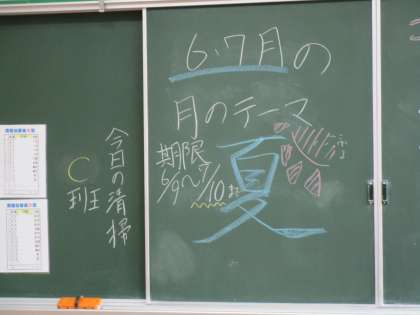 6.7月の
月のテーマ
夏
期限
6/9〜7/10まで
今日の清掃
C班